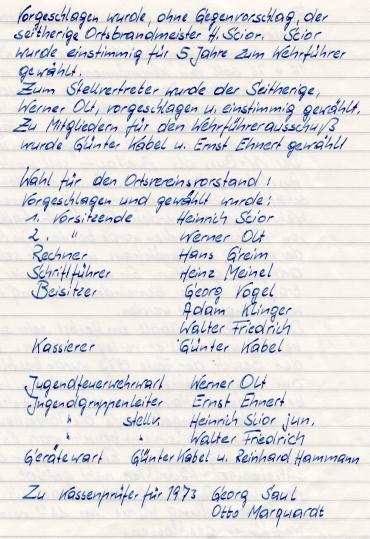 Vorgeschlagen wurde, ohne Gegenvorschlag, der
seitherige Ortsbrandmeister H. Scior. Scior
wurde einstimmig für 5 Jahre zum Wehrführer
gewählt.
Zum Stellvertreter wurde der Seitherige,
Werner Olt, vorgeschlagen u. einstimmig gewählt.
Zu Mitgliedern für den Wehrführerausschuß
wurde Günter Kabel u. Ernst Ehnert gewählt
Wahl für den Ortsvereinsvorstand:
Vorgeschlagen und gewählt wurde:
1. Vorsitzende Heinrich Scior
2. " Werner Olt
Rechner Hans Greim
Schriftführer Heinz Meinel
Beisitzer Georg Vogel
Adam Klinger
Walter Friedrich
Kassierer Günter Kabel
Jugendfeuerwehrwart Werner Olt
Jugendgruppenleiter Ernst Ehnert
" stellv. Heinrich Scior jun.
" " Walter Friedrich
Gerätewart Günter Kabel u. Reinhard Hammann
Zu Kassenprüfer für 1973 Georg Saul
Otto Marquardt